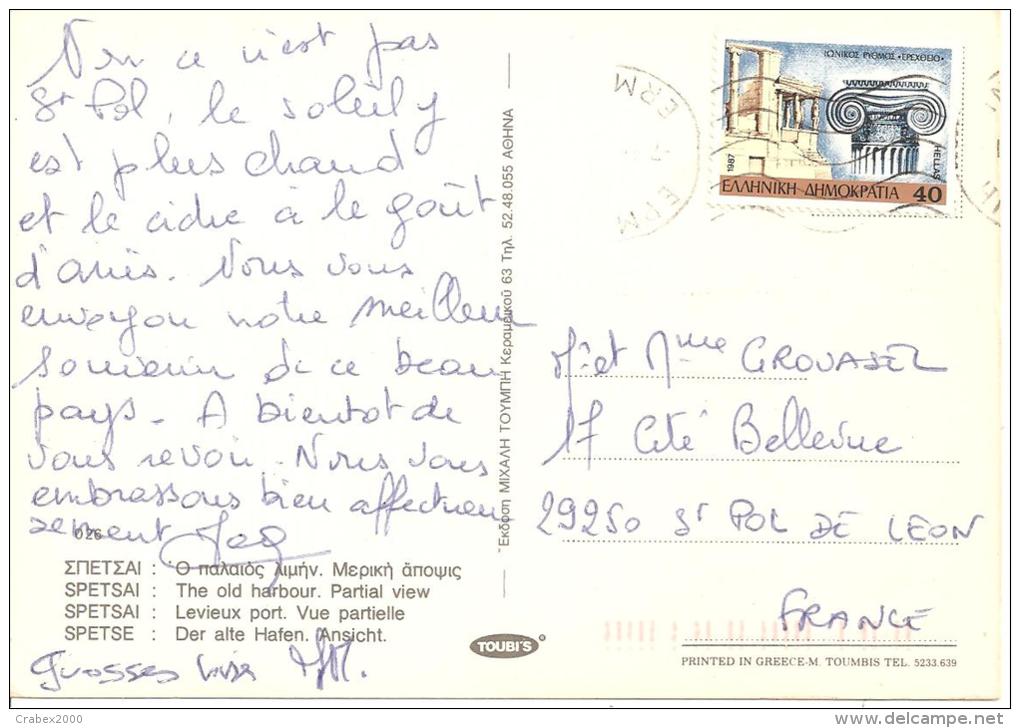 Non ce n'est pas
St Pol, le soleil y
est plus chaud
et le cidre a le goût
d'anis. Nous vous
envoyon notre meilleur
souvenir de ce beau
pays. A bientot de
vous revoir. Nous vous
embrassons bien affectueu
sement
026
ΣΠΕΤΣΑΙ : Ὁ παλαιὸς λιμήν. Μερικὴ ἄποψις
SPETSAI : The old harbour. Partial view
SPETSAI : Levieux port. Vue partielle
SPETSE : Der alte Hafen. Ansicht.
grosses bises
Ἔκδοση ΜΙΧΑΛΗ ΤΟΥΜΠΗ Κεραμεικοῦ 63 Τηλ. 52.48.055 ΑΘΗΝΑ
TOUBI'S
ΕΡΜ
ΕΡΜ
ΙΩΝΙΚΟΣ ΡΥΘΜΟΣ «ΕΡΕΧΘΕΙΟ»
1987
HELLAS
ΕΛΛΗΝΙΚΗ ΔΗΜΟΚΡΑΤΙΑ 40
Mr et Mme GROUASEL
17 Cité Bellevue
29250 St POL DE LEON
FRANCE
PRINTED IN GREECE-M. TOUMBIS TEL. 5233.639
Crabex2000
www.delcampe.net